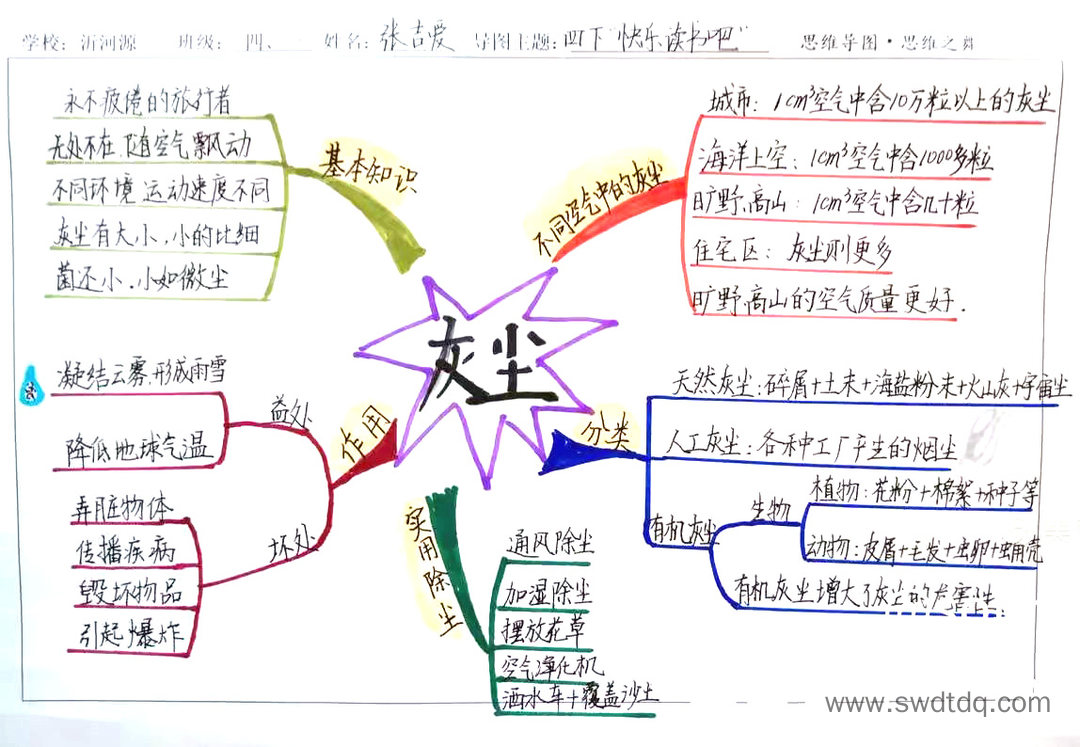 学校：沂河源 班级：四、 姓名：张吉爱 导图主题：四下“快乐读书吧” 思维导图·思维之舞
灰尘
基本知识
永不疲倦的旅行者
无处不在、随空气飘动
不同环境 运动速度不同
灰尘有大小、小的比细
菌还小、小如微尘
不同空气中的灰尘
城市：1cm³空气中含10万粒以上的灰尘
海洋上空：1cm³空气中含1000多粒
旷野、高山：1cm³空气中含几十粒
住宅区：灰尘则更多
旷野、高山的空气质量更好.
分类
天然灰尘：碎屑+土末+海盐粉末+火山灰+宇宙尘
人工灰尘：各种工厂产生的烟尘
有机灰尘
生物
植物：花粉+棉絮+种子等
动物：皮屑+毛发+虫卵+蛹壳
有机灰尘增大了灰尘的危害性.
实用除尘
通风除尘
加湿除尘
摆放花草
空气净化机
洒水车+覆盖沙土
作用
益处
水
凝结云雾、形成雨雪
降低地球气温
坏处
弄脏物体
传播疾病
毁坏物品
引起爆炸
www.swdtdq.com